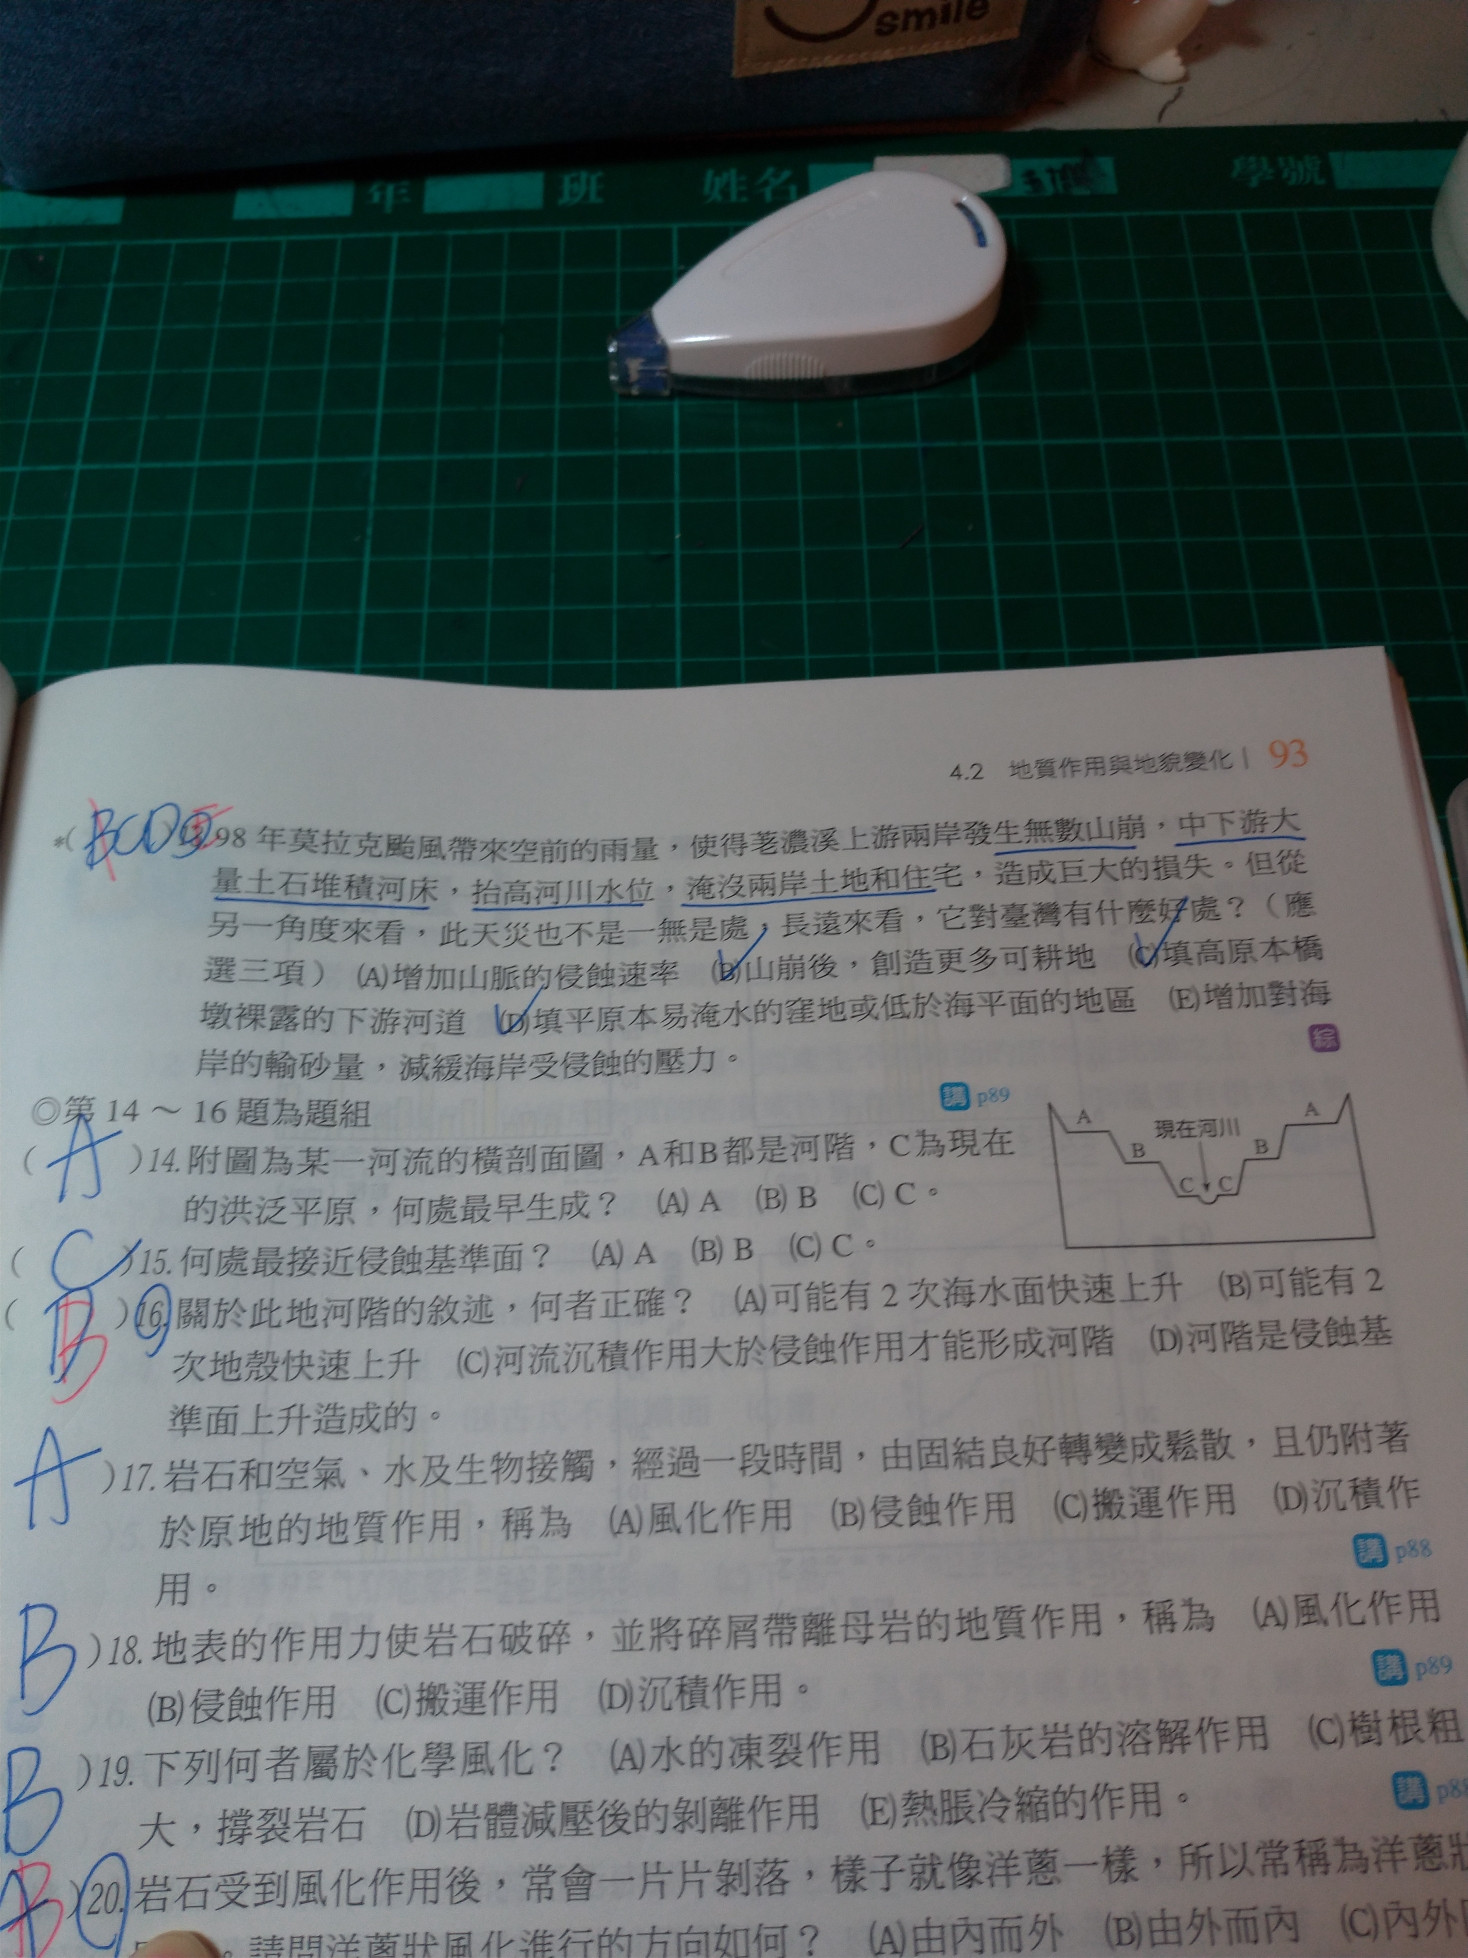 smile
年 班 姓名 學號
4.2 地質作用與地貌變化 | 93
*( BCD ) 13. 98 年莫拉克颱風帶來空前的雨量，使得荖濃溪上游兩岸發生無數山崩，中下游大
量土石堆積河床，抬高河川水位，淹沒兩岸土地和住宅，造成巨大的損失。但從
另一角度來看，此天災也不是一無是處，長遠來看，它對臺灣有什麼好處？（應
選三項） (A)增加山脈的侵蝕速率 (B)山崩後，創造更多可耕地 (C)填高原本橋
墩裸露的下游河道 (D)填平原本易淹水的窪地或低於海平面的地區 (E)增加對海
岸的輸砂量，減緩海岸受侵蝕的壓力。 綜
◎第 14 ～ 16 題為題組 講 p89
( A )14. 附圖為某一河流的橫剖面圖，A和B都是河階，C為現在
的洪泛平原，何處最早生成？ (A) A (B) B (C) C。
A B 現在河川 C C B A
( C )15. 何處最接近侵蝕基準面？ (A) A (B) B (C) C。
( B )16. 關於此地河階的敘述，何者正確？ (A)可能有 2 次海水面快速上升 (B)可能有 2
次地殼快速上升 (C)河流沉積作用大於侵蝕作用才能形成河階 (D)河階是侵蝕基
準面上升造成的。
A )17. 岩石和空氣、水及生物接觸，經過一段時間，由固結良好轉變成鬆散，且仍附著
於原地的地質作用，稱為 (A)風化作用 (B)侵蝕作用 (C)搬運作用 (D)沉積作
用。 講 p88
B )18. 地表的作用力使岩石破碎，並將碎屑帶離母岩的地質作用，稱為 (A)風化作用
(B)侵蝕作用 (C)搬運作用 (D)沉積作用。 講 p89
B )19. 下列何者屬於化學風化？ (A)水的凍裂作用 (B)石灰岩的溶解作用 (C)樹根粗
大，撐裂岩石 (D)岩體減壓後的剝離作用 (E)熱脹冷縮的作用。 講 p88
B )20. 岩石受到風化作用後，常會一片片剝落，樣子就像洋蔥一樣，所以常稱為洋蔥狀
。請問洋蔥狀風化進行的方向如何？ (A)由內而外 (B)由外而內 (C)內外